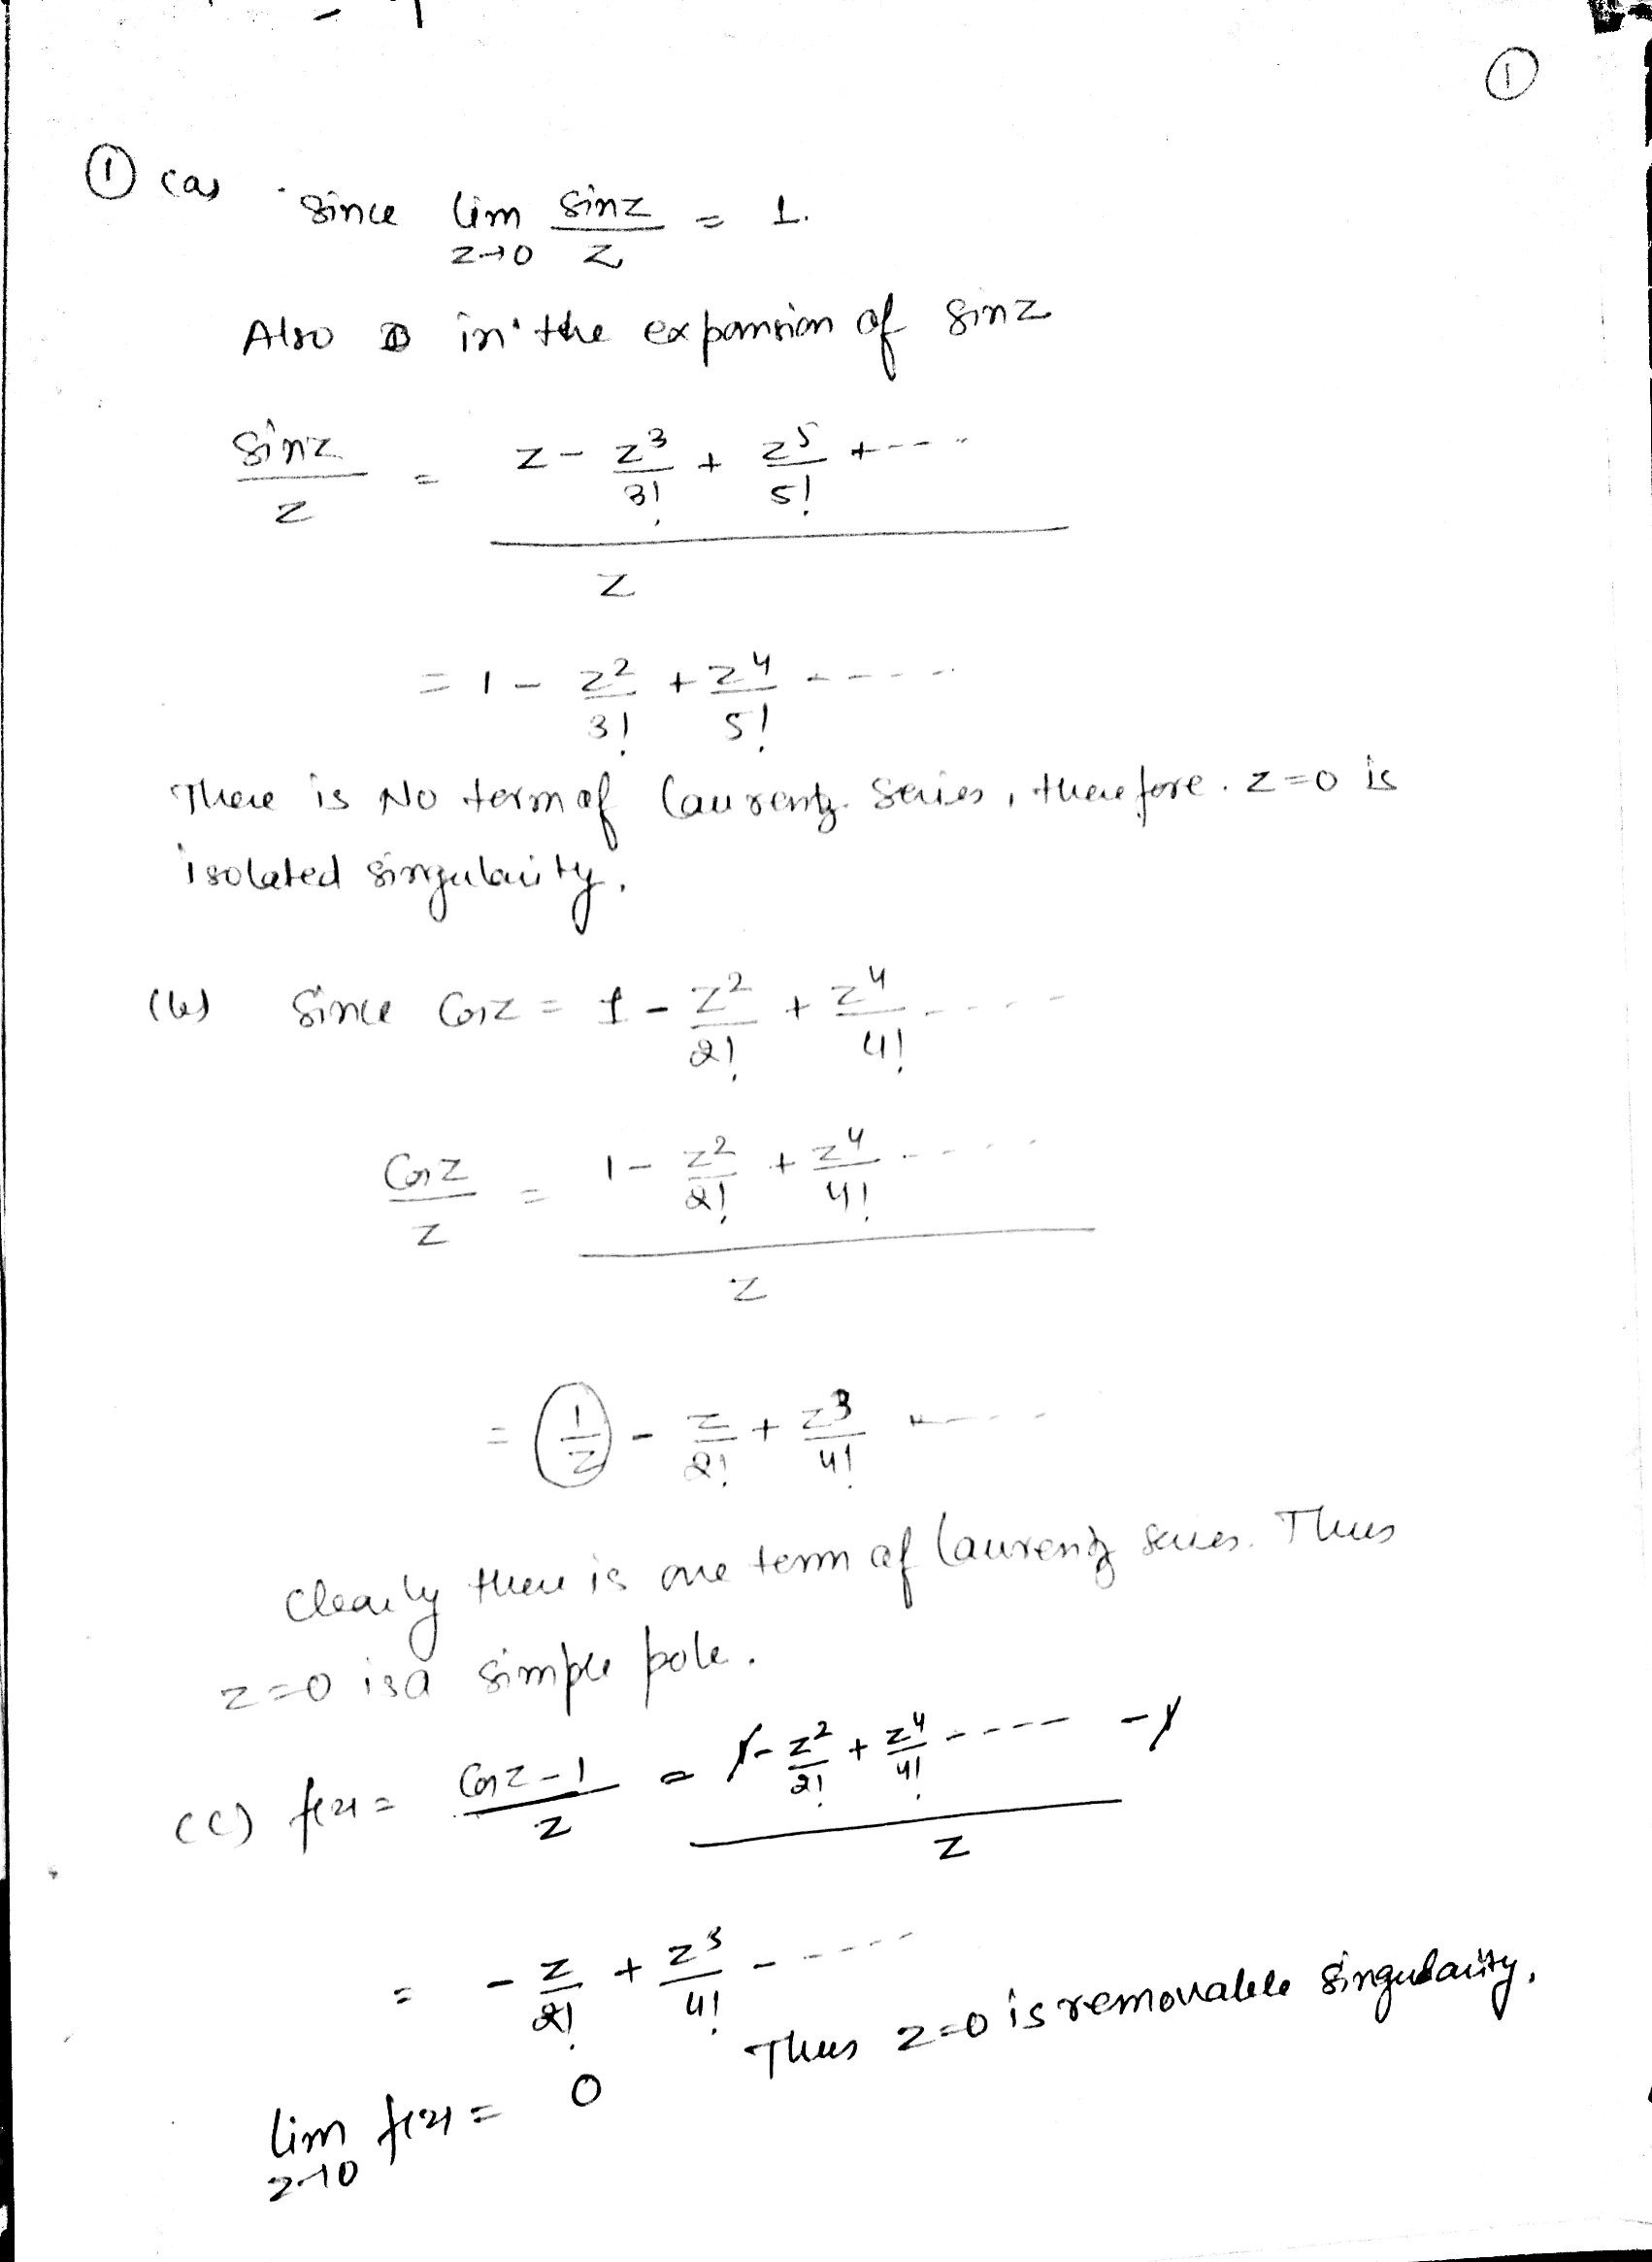 ①
① (a) Since lim sinz/z = 1.
z→0
Also in the expansion of sinz
sinz/z = (z - z³/3! + z⁵/5! + ----)/z
= 1 - z²/3! + z⁴/5! - - - -
There is No term of Laurentz Series, therefore. z=0 is
isolated singularity.
(b) Since Cosz = 1 - z²/2! + z⁴/4! - - - -
Cosz/z = (1 - z²/2! + z⁴/4! - - - -)/z
= (1/z) - z/2! + z³/4! - - - -
Clearly there is one term of Laurentz series. Thus
z=0 is a simple pole.
(c) f(z) = (Cosz-1)/z = (1 - z²/2! + z⁴/4! - - - - -1)/z
= -z/2! + z³/4! - - - - -
Thus z=0 is removable singularity.
lim f(z) = 0
z→0